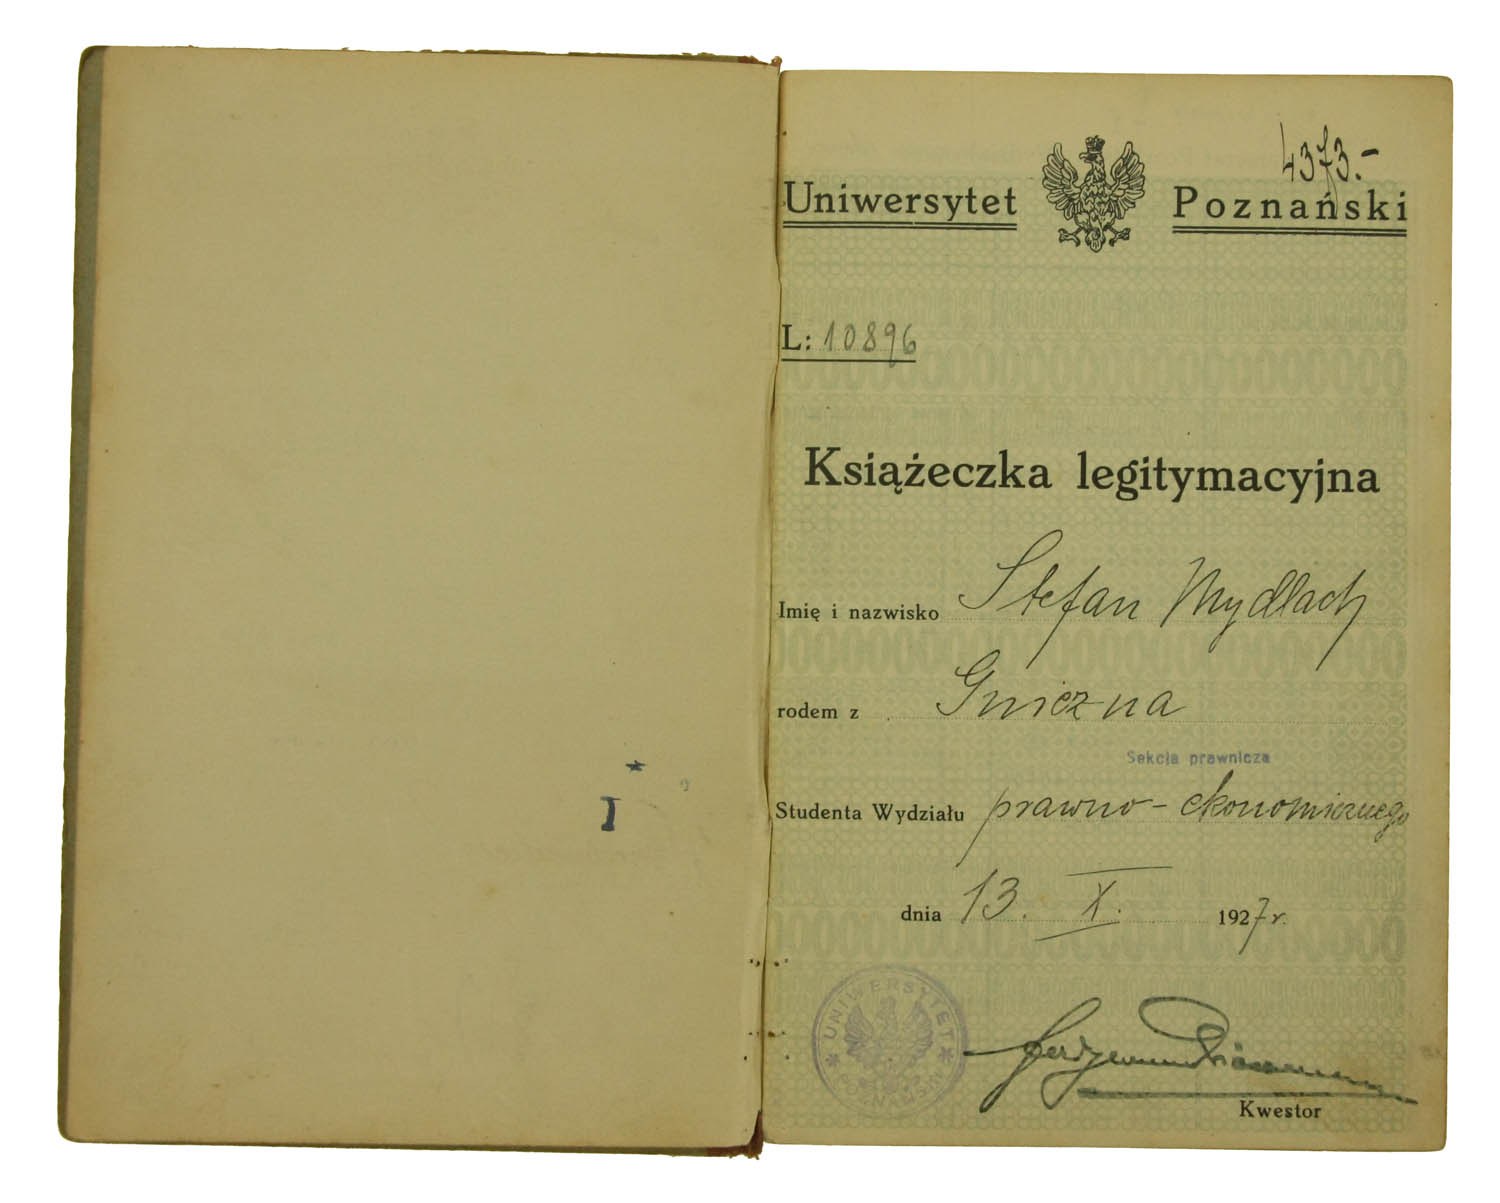 4373.-
Uniwersytet Poznański
L: 10896
Książeczka legitymacyjna
Imię i nazwisko Stefan Mydlach
rodem z Gniezna
Sekcja prawnicza
Studenta Wydziału prawno-ekonomicznego
dnia 13. X. 1927 r.
UNIWERSYTET POZNAŃSKI
Kwestor
I